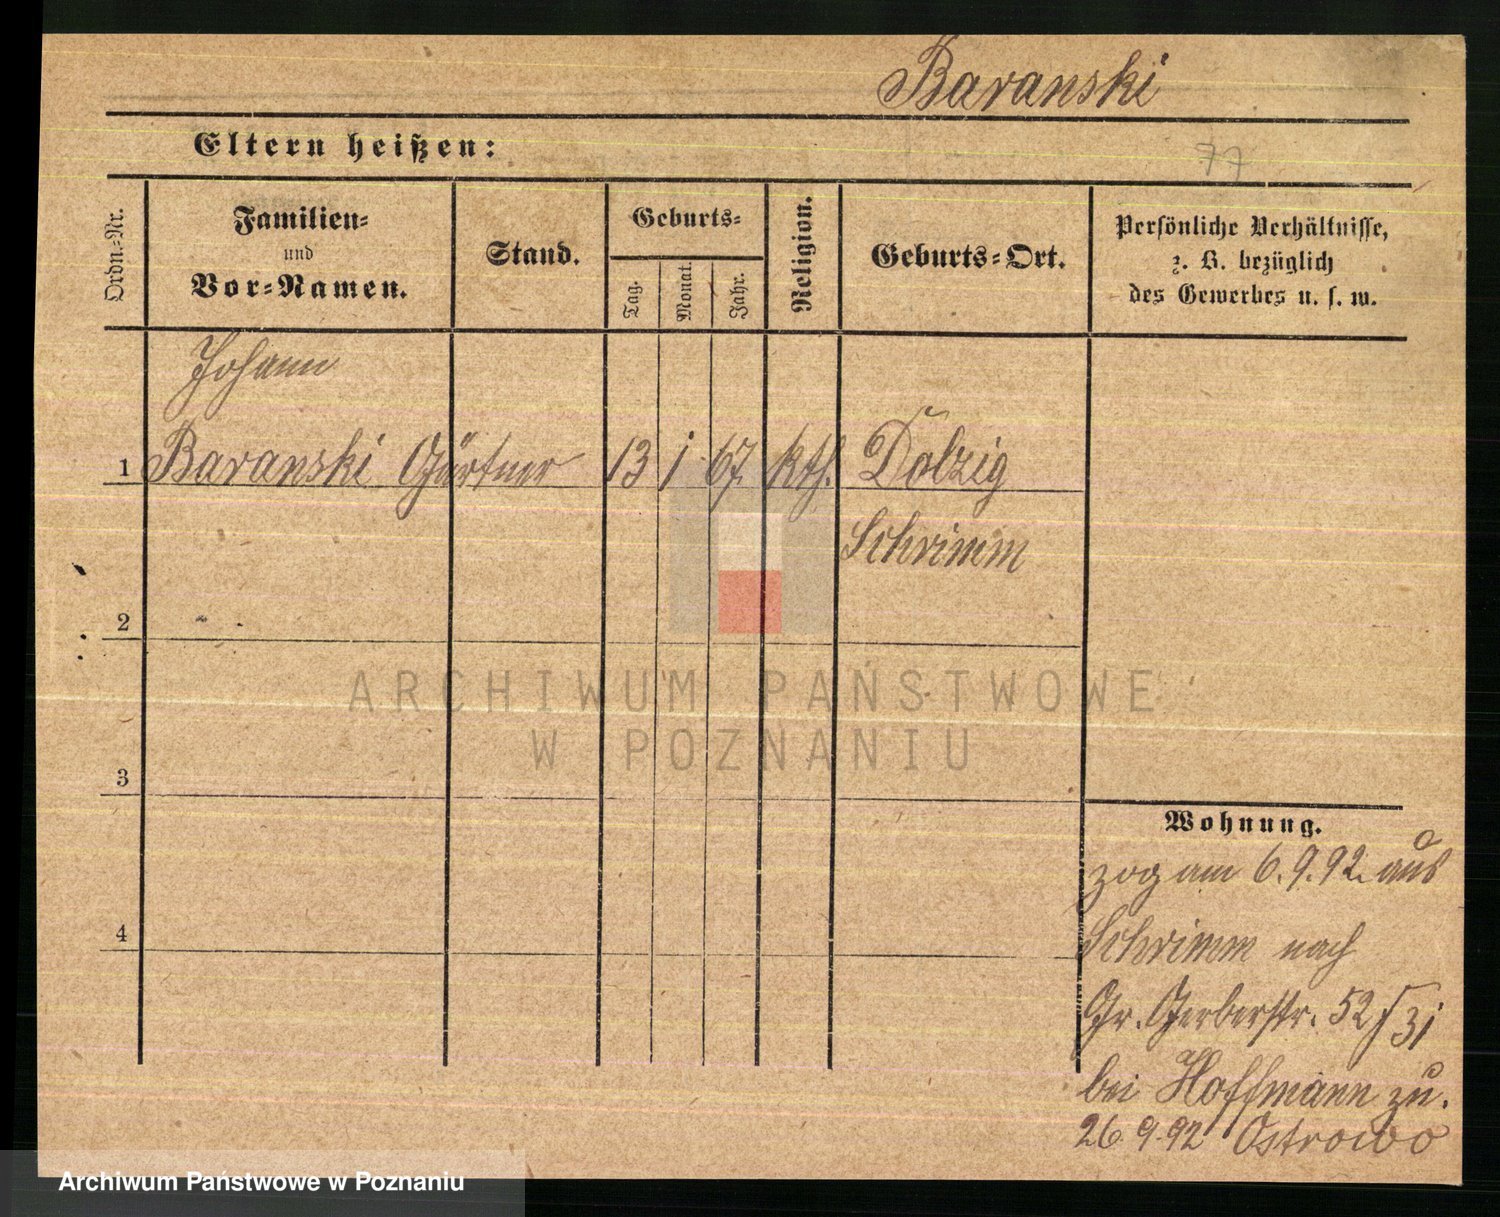 Baranski
Eltern heißen:
77
Ordn.=Nr.
Familien=
und
Vor=Namen.
Stand.
Geburts=
Tag.
Monat.
Jahr.
Religion.
Geburts=Ort.
Persönliche Verhältnisse,
z. B. bezüglich
des Gewerbes u. s. w.
Johann
1 Baranski Gärtner 13 1 67. kth. Dolzig
Schrimm
2
ARCHIWUM PAŃSTWOWE
W POZNANIU
3
Wohnung.
zog am 6.9.92. aus
4
Schrimm nach
Gr. Gerberstr. 52
bei Hoffmann zu.
26.9.92 Ostrowo
Archiwum Państwowe w Poznaniu